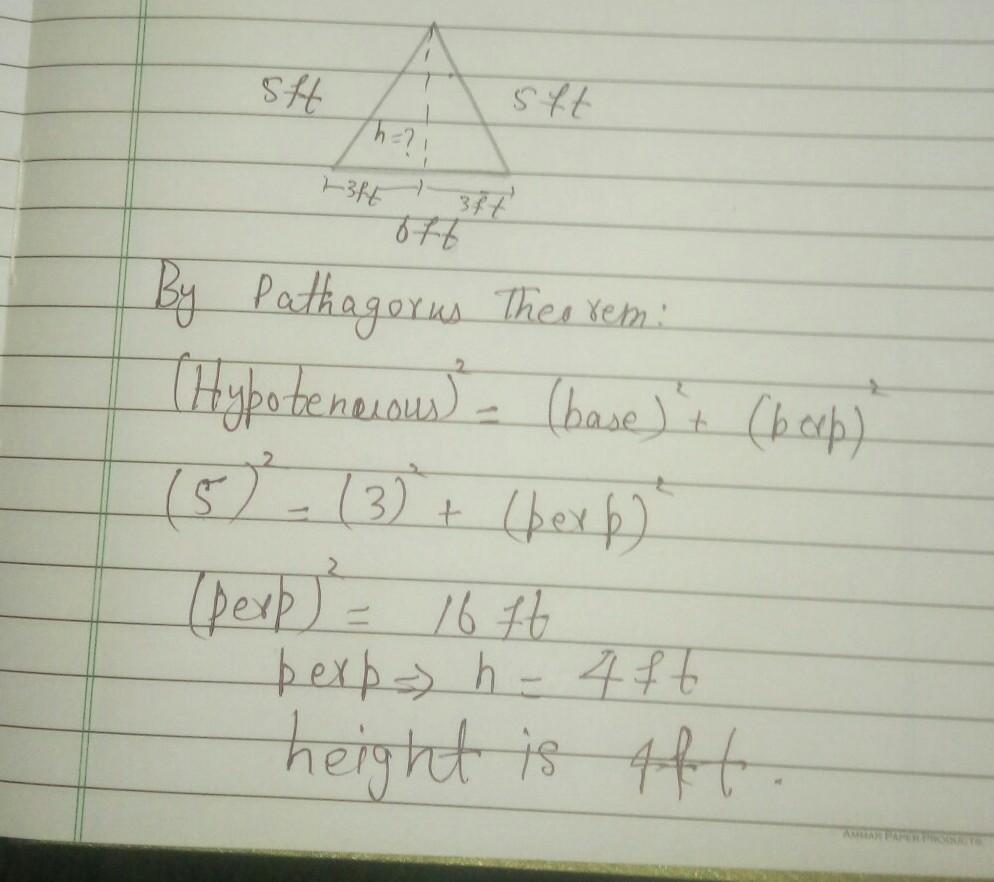 5ft 5ft
h=?
3ft 3ft
6ft
By Pathagorus Theorem:
(Hypotenuous)² = (base)² + (perp)²
(5)² = (3)² + (perp)²
(perp)² = 16 ft
perp ⇒ h = 4ft
height is 4ft.
AMMAR PAPER PRODUCTS